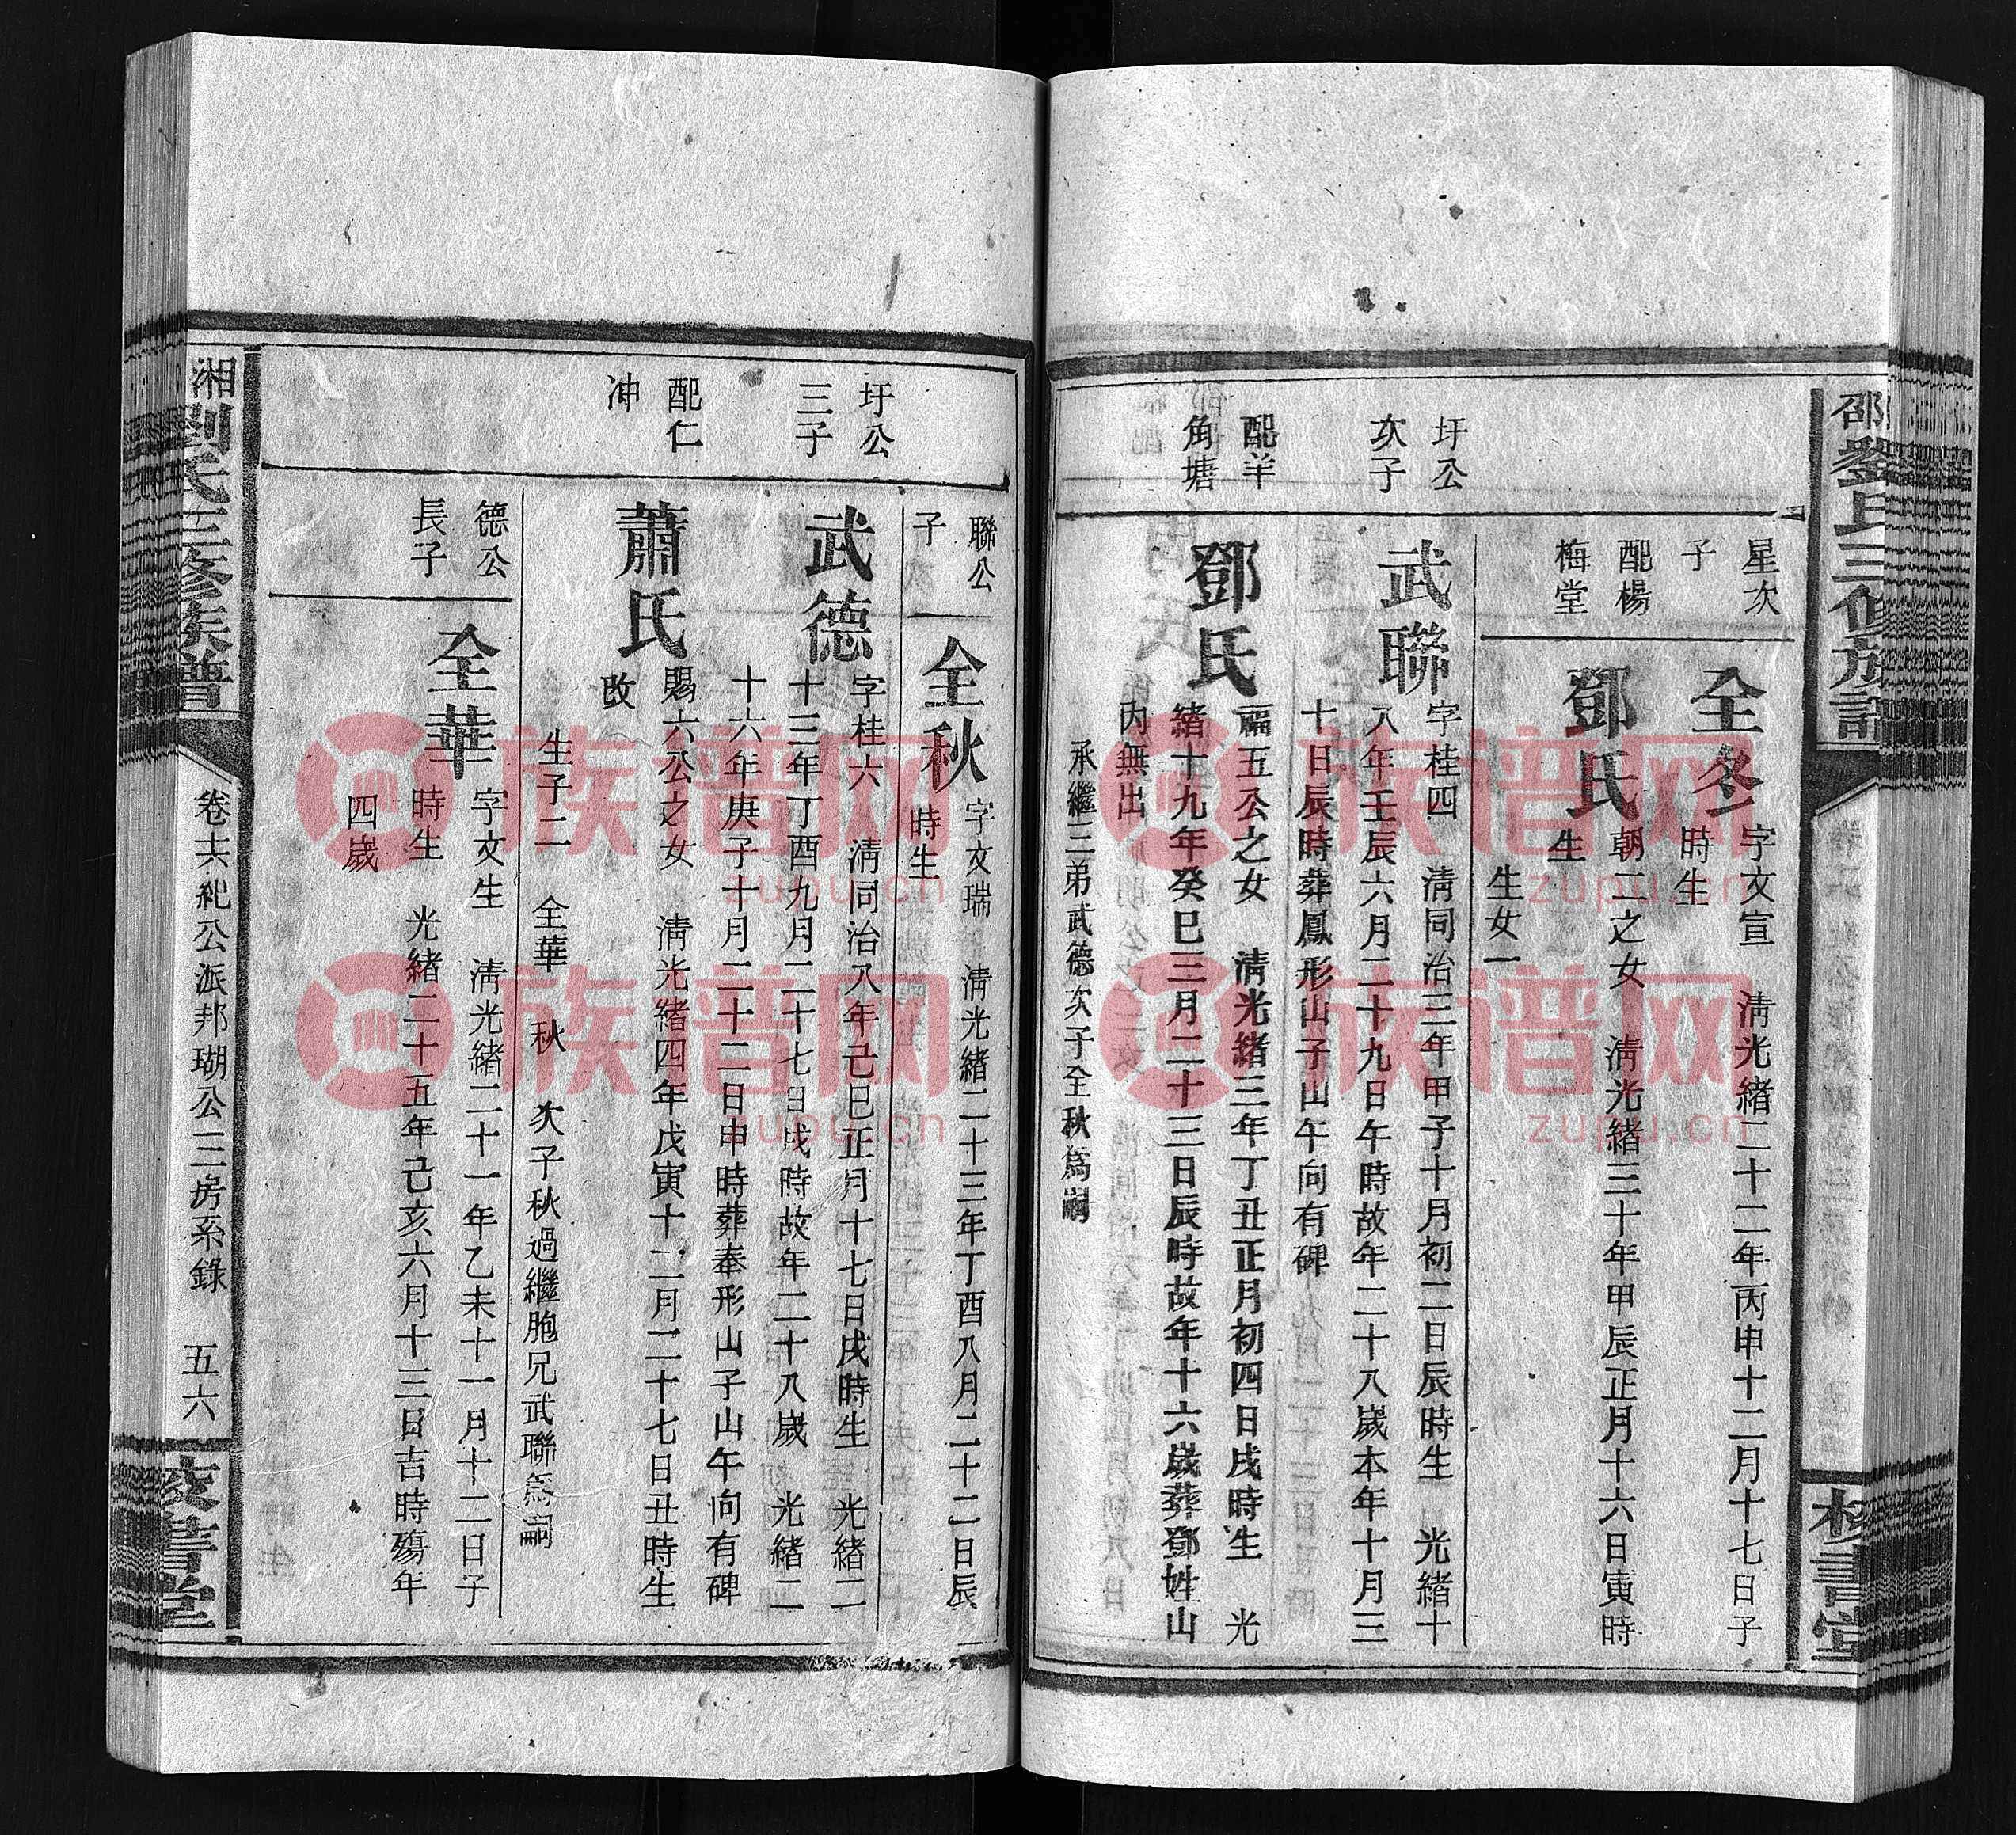 邵劉氏三修族譜
校書堂
星次
子
全冬
字文宣　淸光緒二十二年丙申十二月十七日子
時生
配楊
梅堂
鄧氏
朝二之女　淸光緒三十年甲辰正月十六日寅時
生
生女一
圩公
次子
武聯
字桂四　淸同治三年甲子十月初二日辰時生　光緒十
八年壬辰六月二十九日午時故年二十八歲本年十月三
十日辰時葬鳳形山子山午向有碑
配羊
角塘
鄧氏
福五公之女　淸光緒三年丁丑正月初四日戌時生　光
緒十九年癸巳三月二十三日辰時故年十六歲葬鄧姓山
內無出
承繼三弟武德次子全秋爲嗣
聯公
子
全秋
字文瑞　淸光緒二十三年丁酉八月二十二日辰
時生
圩公
三子
武德
字桂六　淸同治八年己巳正月十七日戌時生　光緒二
十三年丁酉九月二十七日戌時故年二十八歲　光緒二
十六年庚子十月二十二日申時葬奉形山子山午向有碑
配仁
冲
蕭氏
賜六公之女　淸光緒四年戊寅十二月二十七日丑時生
改
生子二　全華　秋　次子秋過繼胞兄武聯爲嗣
德公
長子
全華
字文生　淸光緒二十一年乙未十一月十二日子
時生　光緒二十五年己亥六月十三日吉時殤年
四歲
湘劉氏三修族譜
卷十六紀公派邦瑚公三房系錄　五六
校書堂
族谱网
zupu.cn
族谱网
zupu.cn
族谱网
zupu.cn
族谱网
zupu.cn